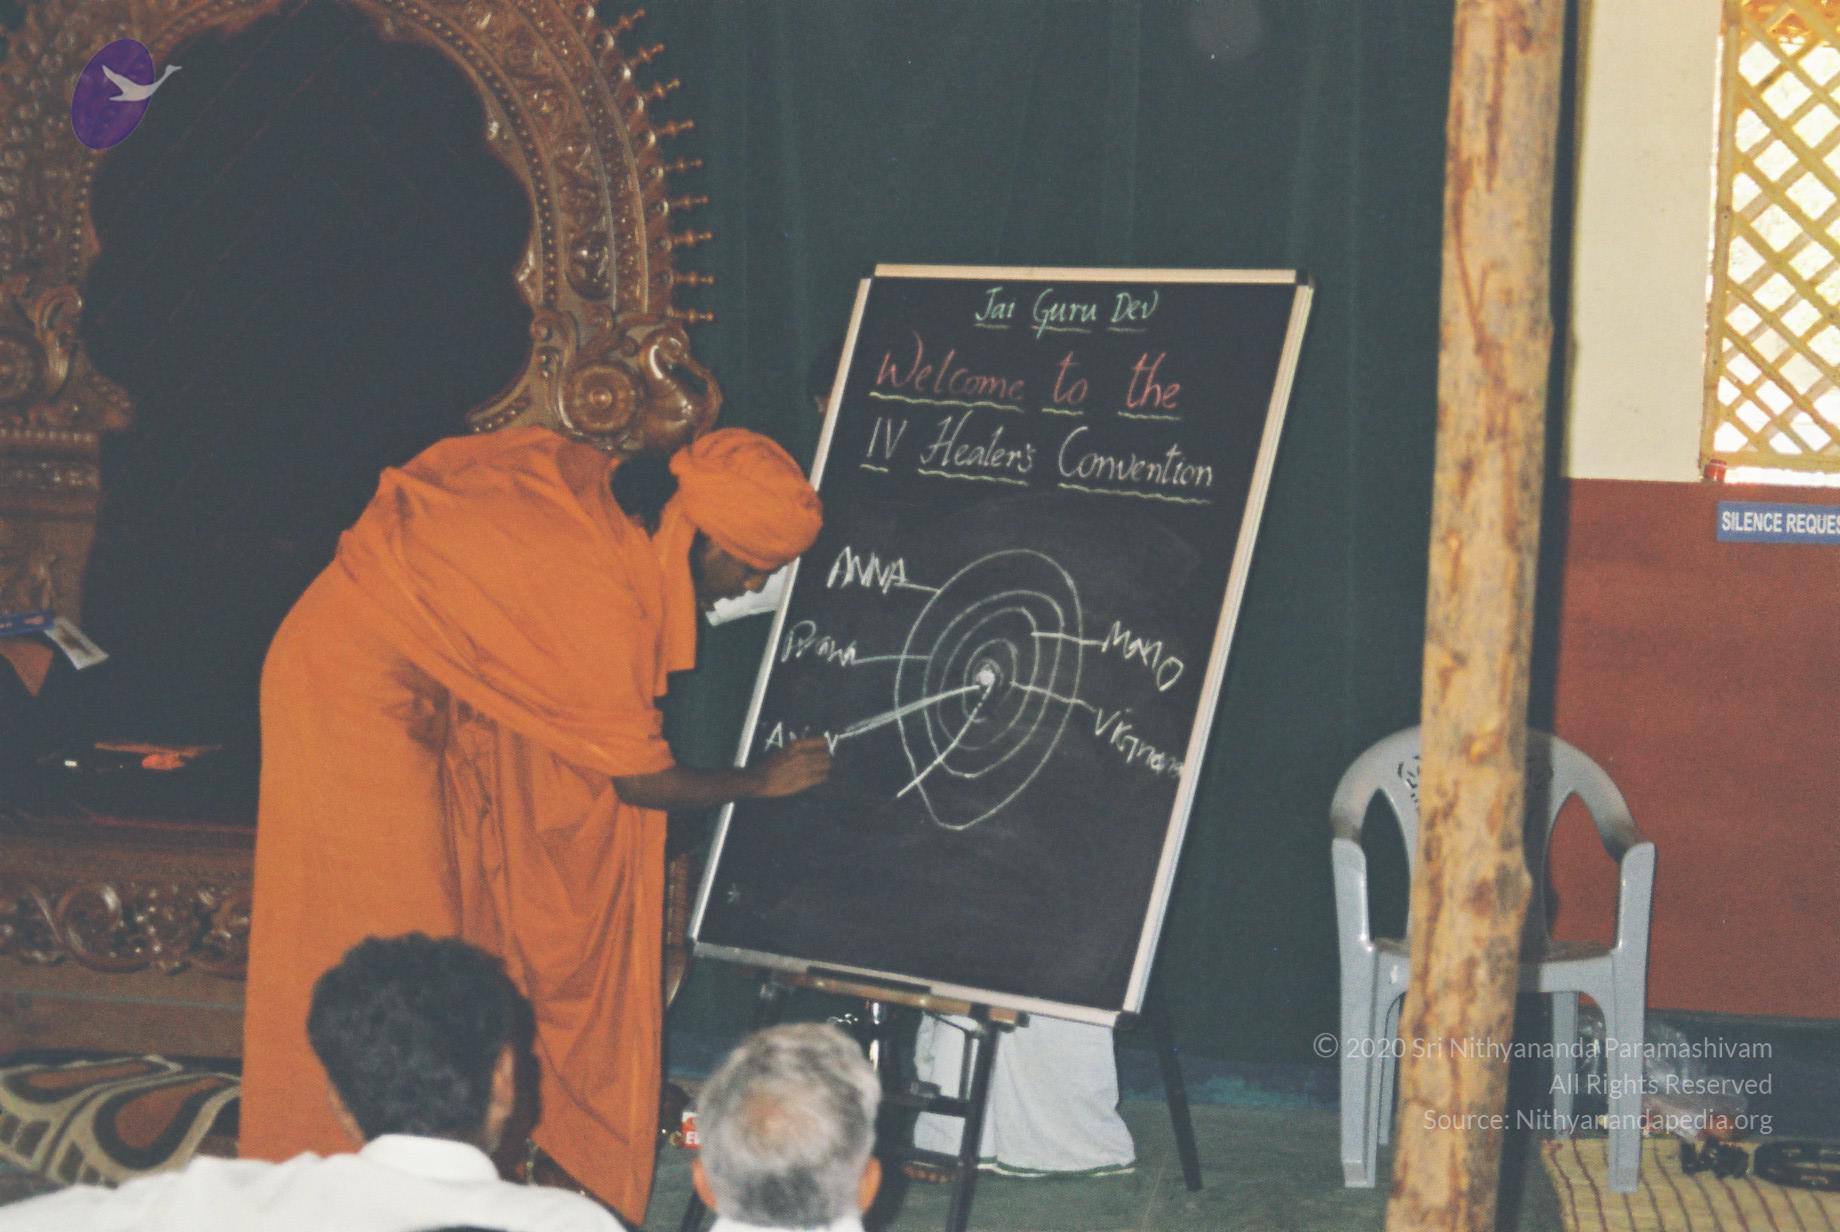 Jai Guru Dev
Welcome to the
IV Healer's Convention
ANNA
Prana
MANO
VIGnana
SILENCE REQUES
© 2020 Sri Nithyananda Paramashivam
All Rights Reserved
Source: Nithyanandapedia.org